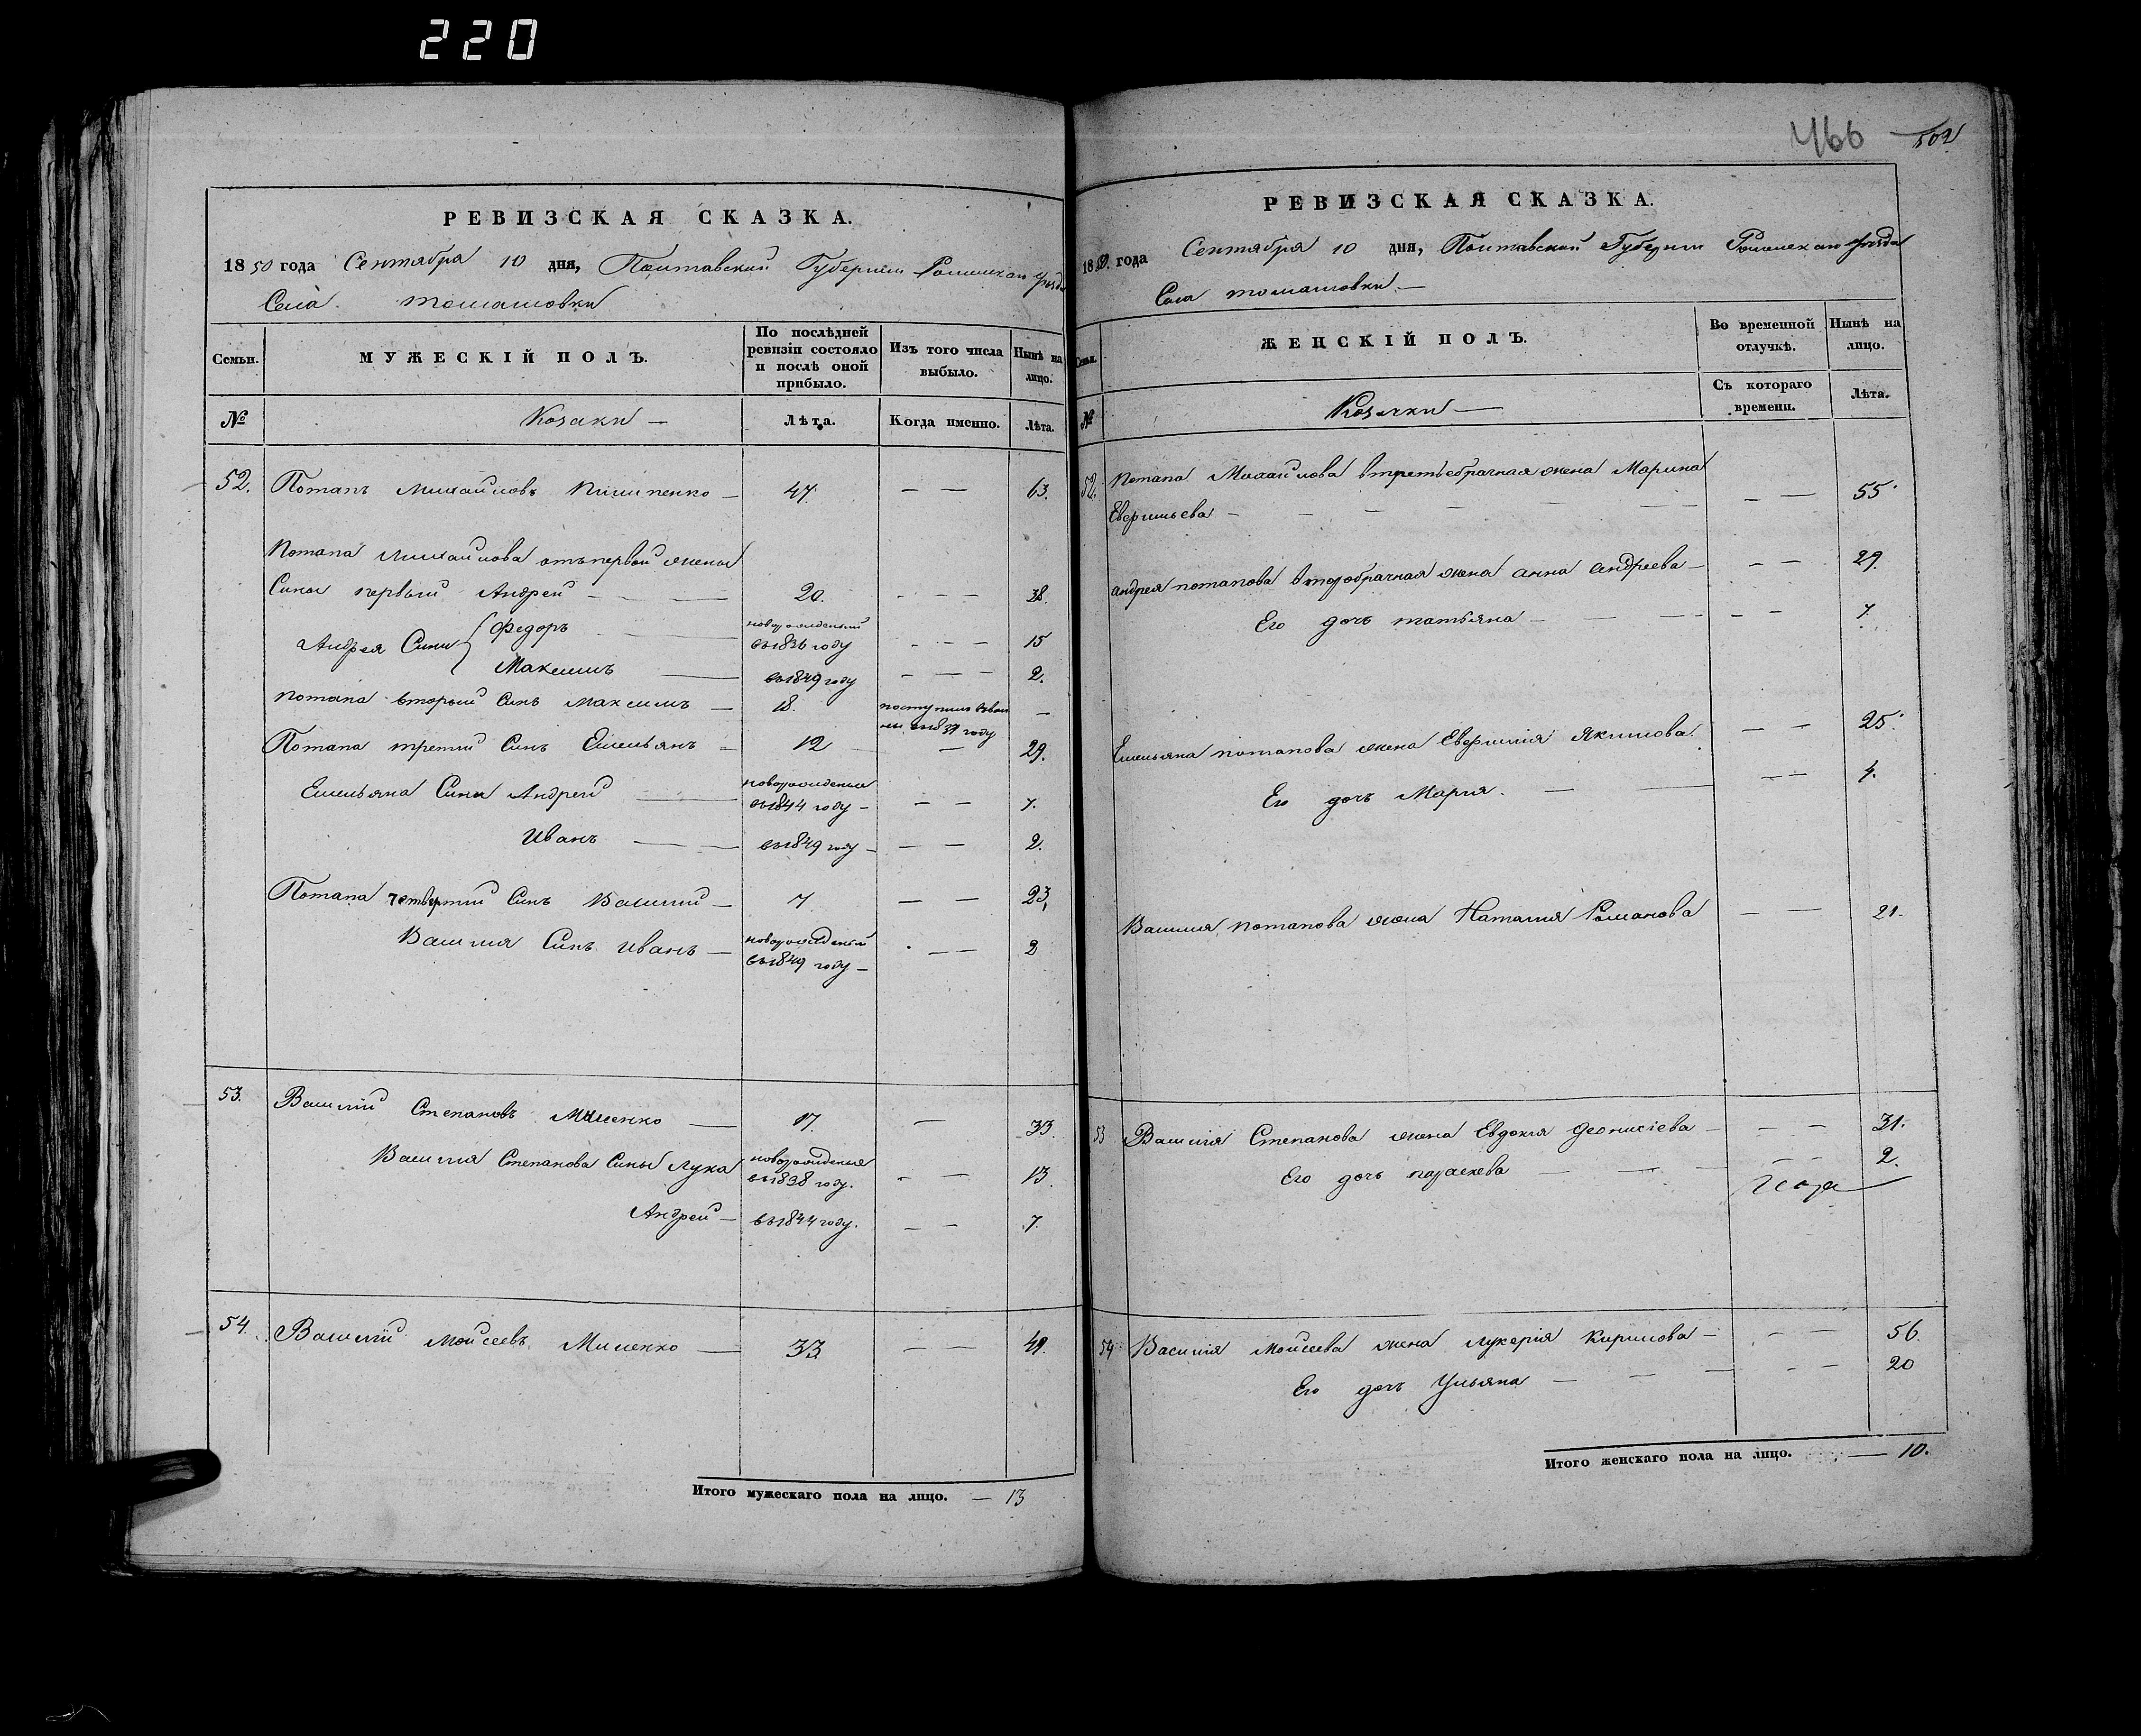 220
РЕВИЗСКАЯ СКАЗКА.
1850 года Сентября 10 дня, Полтавской Губернии Роменскаго уезда
Села Томашовки
Семьи. МУЖЕСКІЙ ПОЛЪ. По послѣдней ревизіи состояло и послѣ оной прибыло. Изъ того числа выбыло. Нынѣ на лицо.
№ Козаки — Лѣта. Когда именно. Лѣта.
52. Потапъ Михайловъ Пилипенко — 47. — — 63.
Потапа Михайлова отъ первой жены
Сины первый Андрей — — 20. — — — 38.
Андрея Сини { Федоръ — новорожденый въ 1836 году — — — 15
Максимъ — въ 1849 году — — — 2.
Потапа вторый Синъ Максимъ — 18. поступилъ —
Потапа третій Синъ Емельянъ — 12 — 29.
Емельяна Сини Андрей — новорожденые въ 1844 году — — — 7.
Иванъ — — въ 1849 году — — — 2.
Потапа четвертий Синъ Василий — 7 — — 23,
Василия Синъ Иванъ — новорожденый въ 1849 году — — — 2
53. Василий Степановъ Миленко — 17. — 33.
Василия Степанова Сины Лука новорожденые въ 1838 году. — — 13.
Андрей — въ 1844 году. — — 7.
54. Василий Моисеевъ Миленко — 33 — — 49.
Итого мужескаго пола на лицо. — 13
466 502
РЕВИЗСКАЯ СКАЗКА.
1850. года Сентября 10 дня, Полтавской Губернии Роменскаго уезда
Села Томашовки —
Семьи. ЖЕНСКІЙ ПОЛЪ. Во временной отлучкѣ. Нынѣ на лицо.
№ Козачки — Съ котораго времени. Лѣта.
52. Потапа Михайлова втретьебрачная жена Марина
Евфимьева — — — — — — — 55
Андрея Потапова второбрачная жена Анна Андреева — — — 29.
Его дочь Татьяна — — — — — 7.
Емельяна Потапова жена Евфимия Якимова. — — 25
Его дочь Мария. — — — — 4.
Василия Потапова жена Наталия Романова — — 21.
53 Василия Степанова жена Евдокия Деонисіева — — — 31.
Его дочь Параскева — — — — — 2.
54 Василия Моисеева жена Лукерія Кирилова — — — 56.
Его дочь Ульяна — — — — — 20
Итого женскаго пола на лицо. — 10.